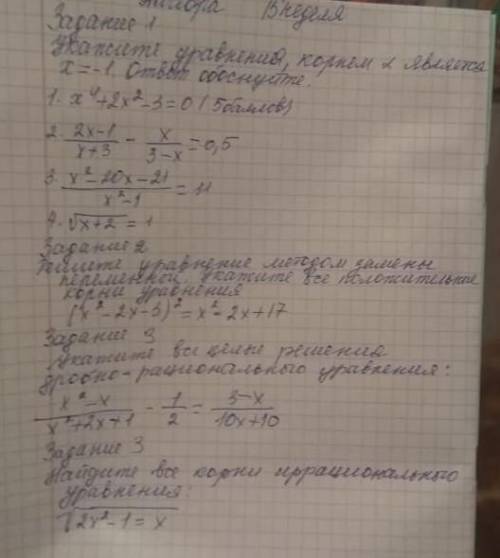 15 неделя
Задание 1
Укажите уравнения, корнем х является
х = -1. Ответ обоснуйте.
1. x⁴+2x²-3=0 (5 баллов)
2. (2x-1)/(x+3) - x/(3-x) = 0,5
3. (x²-20x-21)/(x²-1) = 11
4. √(x+2) = 1
Задание 2
Решите уравнение методом замены
переменной. Укажите все положительные
корни уравнения
(x²-2x-5)² = x²-2x+17
Задание 3
Укажите все целые решения
дробно-рационального уравнения:
(x²-x)/(x²+2x+1) - 1/2 = (3-x)/(10x+10)
Задание 3
Найдите все корни иррационального
уравнения:
√2x²-1 = x